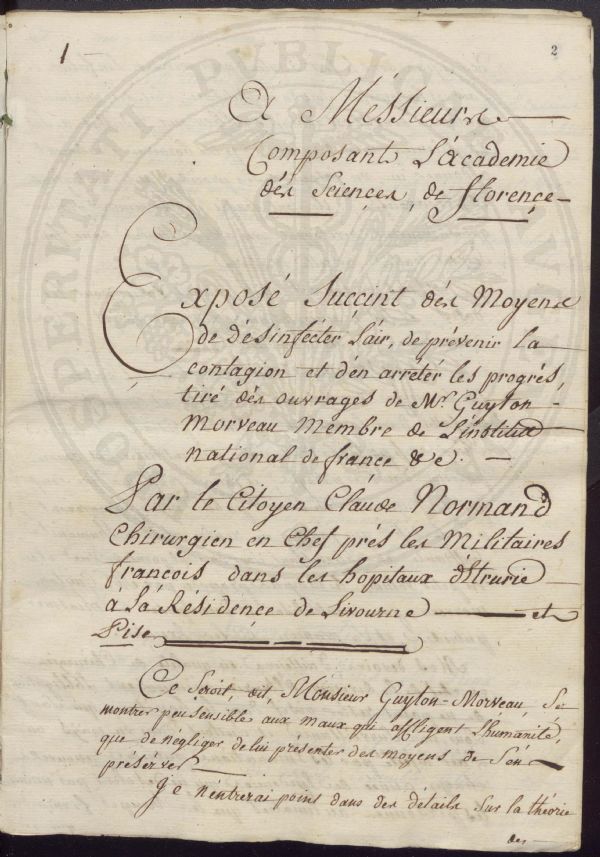 1
2
A Méssieurs
Composant L'académie
dés Sciences de florence
Exposé Succint dés Moyens
de désinfécter L'air, de prévenir la
contagion et d'en arretér les progrés,
tiré dés ouvrages de Mr. Guyton-
Morveau Membre de L'institut
national de france &c.
Par le Citoyen Claude Normand
Chirurgien en Chef prés les Militaires
francois dans les hopitaux d'Etrurie
à La Résidence de Livourne et
Pise
Ce Seroit, dit, Monsieur Guyton-Morveau, Se
montrer peu Sensible aux maux qui affligent L'humanité,
que de négliger de lui présenter des moyens de S'én
préserver
Je n'entrerai point dans des détails Sur la théorie
des